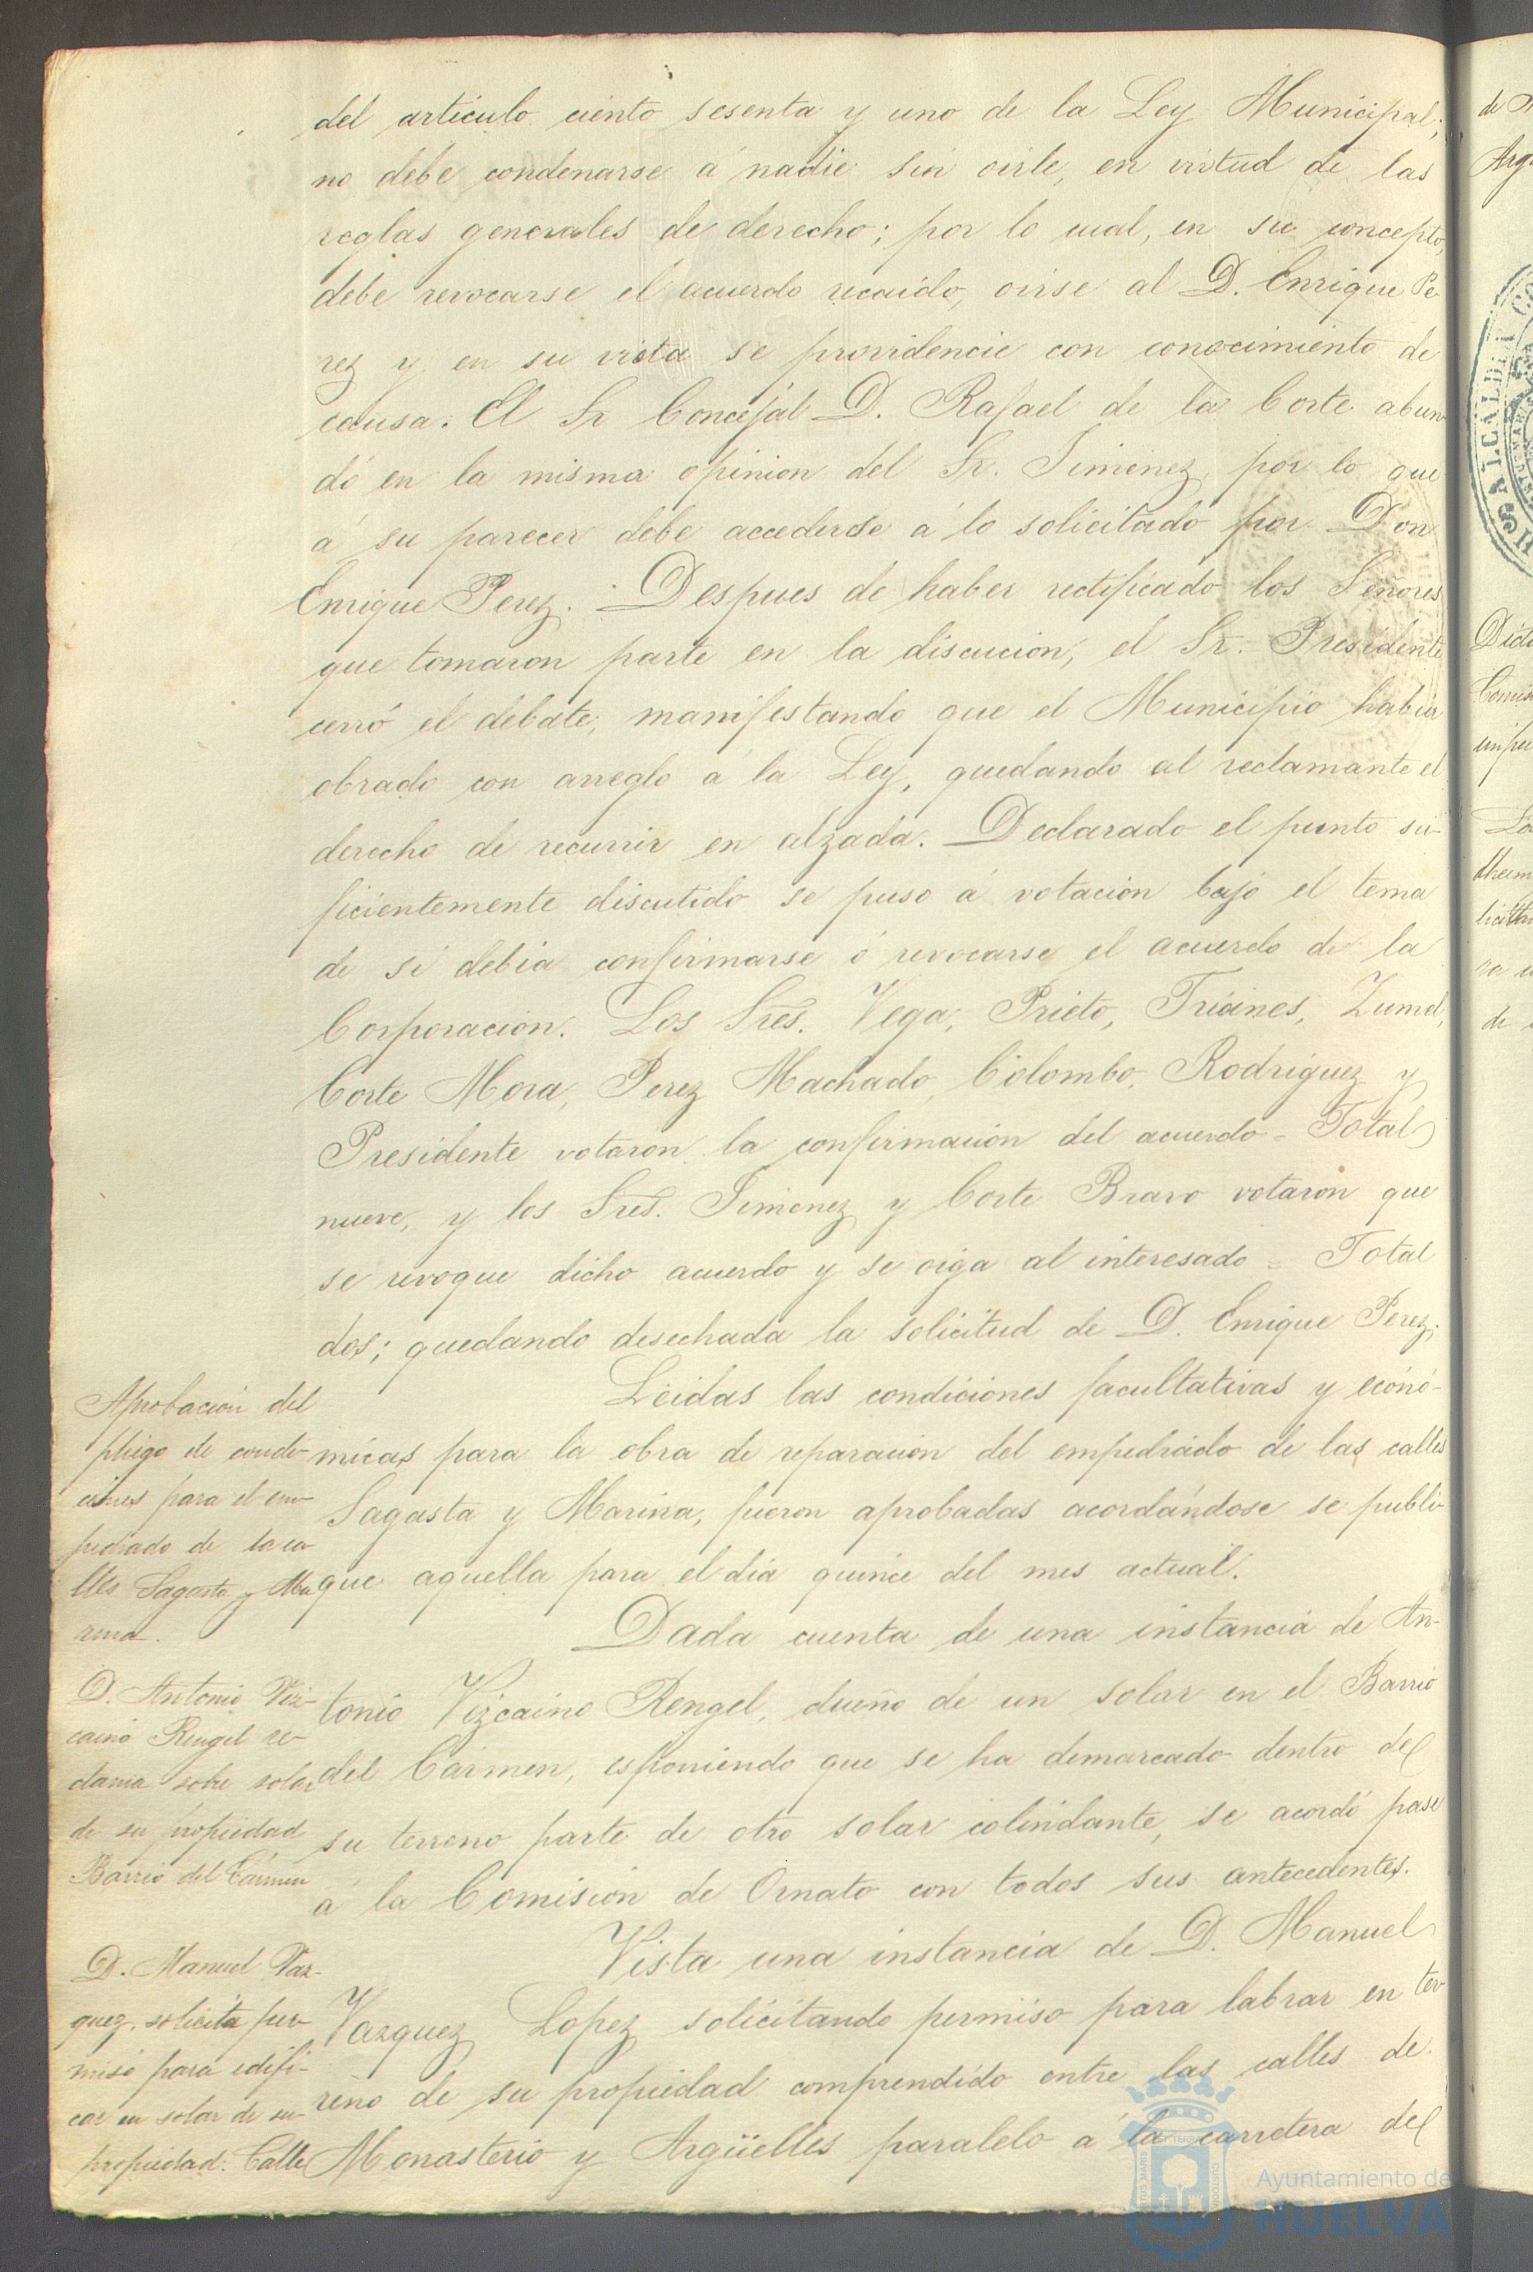 del articulo ciento sesenta y uno de la Ley Municipal;
no debe condenarse á nadie sin oirle, en virtud de las
reglas generales de derecho; por lo cual, en su concepto,
debe revocarse el acuerdo recaido, oirse al D. Enrique Pe-
rez y en su vista se providencie con conocimiento de
causa. El Sr Concejal D. Rafael de la Corte abun-
dó en la misma opinion del Sr. Jimenez, por lo que
á su parecer debe accederse á lo solicitado por Don
Enrique Perez. Despues de haber rectificado los Señores
que tomaron parte en la discucion, el Sr. Presidente
cerró el debate, manifestando que el Municipio habia
obrado con arreglo á la Ley, quedando al reclamante el
derecho de recurrir en alzada. Declarado el punto su-
ficientemente discutido se puso á votacion bajo el tema
de si debia confirmarse ó revocarse el acuerdo de la
Corporacion. Los Sres. Vega, Prieto, Trianes, Zumel,
Corte Mora, Perez Machado, Colombo, Rodriguez y
Presidente votaron la confirmacion del acuerdo = Total
nueve, y los Sres. Jimenez y Corte Bravo votaron que
se revoque dicho acuerdo y se oiga al interesado = Total
dos; quedando desechada la solicitud de D. Enrique Perez.
Aprobacion del
pliego de condi-
ciones para el em-
pedrado de las ca-
lles Sagasta y Ma-
rina.
Leidas las condiciones facultativas y econó-
micas para la obra de reparacion del empedrado de las calles
Sagasta y Marina, fueron aprobadas acordándose se publi-
que aquella para el dia quince del mes actual.
D. Antonio Viz-
caino Rengel re-
clama sobre solar
de su propiedad
Barrio del Cármen
Dada cuenta de una instancia de An-
tonio Vizcaino Rengel, dueño de un solar en el Barrio
del Cármen, esponiendo que se ha demarcado dentro del
su terreno parte de otro solar colindante, se acordó pase
á la Comision de Ornato con todos sus antecedentes.
D. Manuel Vaz-
quez, solicita per-
miso para edifi-
car en solar de su
propiedad. Calle
Vista una instancia de D. Manuel
Vazquez Lopez solicitando permiso para labrar en ter-
reno de su propiedad comprendido entre las calles de
Monasterio y Argüelles paralelo á la carretera del
Ayuntamiento de
HUELVA